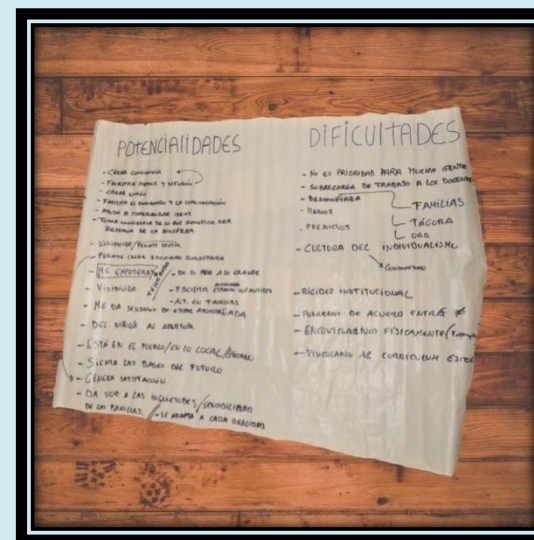 POTENCIALIDADES
- CREAR CONCIENCIA
- FACILITAR MEDIOS Y DIFUSIÓN
- CREAR UNIÓN
- FACILITA EL ENCUENTRO Y LA COMUNICACIÓN
- AYUDA A MATERIALIZAR IDEAS
- TOMAR CONCIENCIA DE LO QUE SIGNIFICA SER
RESERVA DE LA BIOSFERA
- VISIBILIZA / PERMITE
- PERMITE CREAR SOCIEDAD
- ME EMPODERA
- EN LO PEQ A LO GRANDE
- VISIBILIZA
- FACILITA
- ACT. EN FAMILIAS
- ME DA SENSACIÓN DE ESTAR ACOMPAÑADA
- DEL NIÑO/A AL ADULTO/A
- ESTÁ EN EL PUEBLO/EN LO LOCAL/
- SIENTA LAS BASES DEL FUTURO
- GENERA SATISFACCIÓN
- DA VOZ A LAS INQUIETUDES/SENSIBILIDAD
DE LAS FAMILIAS. /- SE ADAPTA A CADA REALIDAD
DIFICULTADES
- NO ES PRIORIDAD PARA MUCHA GENTE
- SOBRECARGA DE TRABAJO A LOS DOCENTES
- DESCONFIANZA
- MIEDOS
- PREJUICIOS
FAMILIAS
- CULTURA DEL INDIVIDUALISMO
CONSUMISMO
- RIGIDEZ INSTITUCIONAL
- PONERNOS DE ACUERDO ENTRE
- ENCONTRARNOS FÍSICAMENTE
- VINCULARLO AL CURRÍCULUM